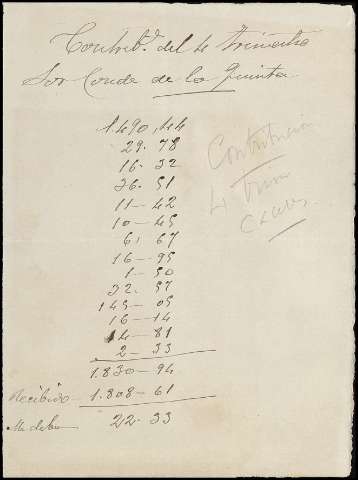 Contribn. del 4 trimestre
Sor Conde de la Quinta
1.490,44
29.78
16-32
36.51
11-42
10-45
6, 67
16-95
1-50
32.57
145-05
16-14
14-81
2-33
1.830-94
Recibido 1.808-61
Me debe 22-33
Contribucion
4 trim